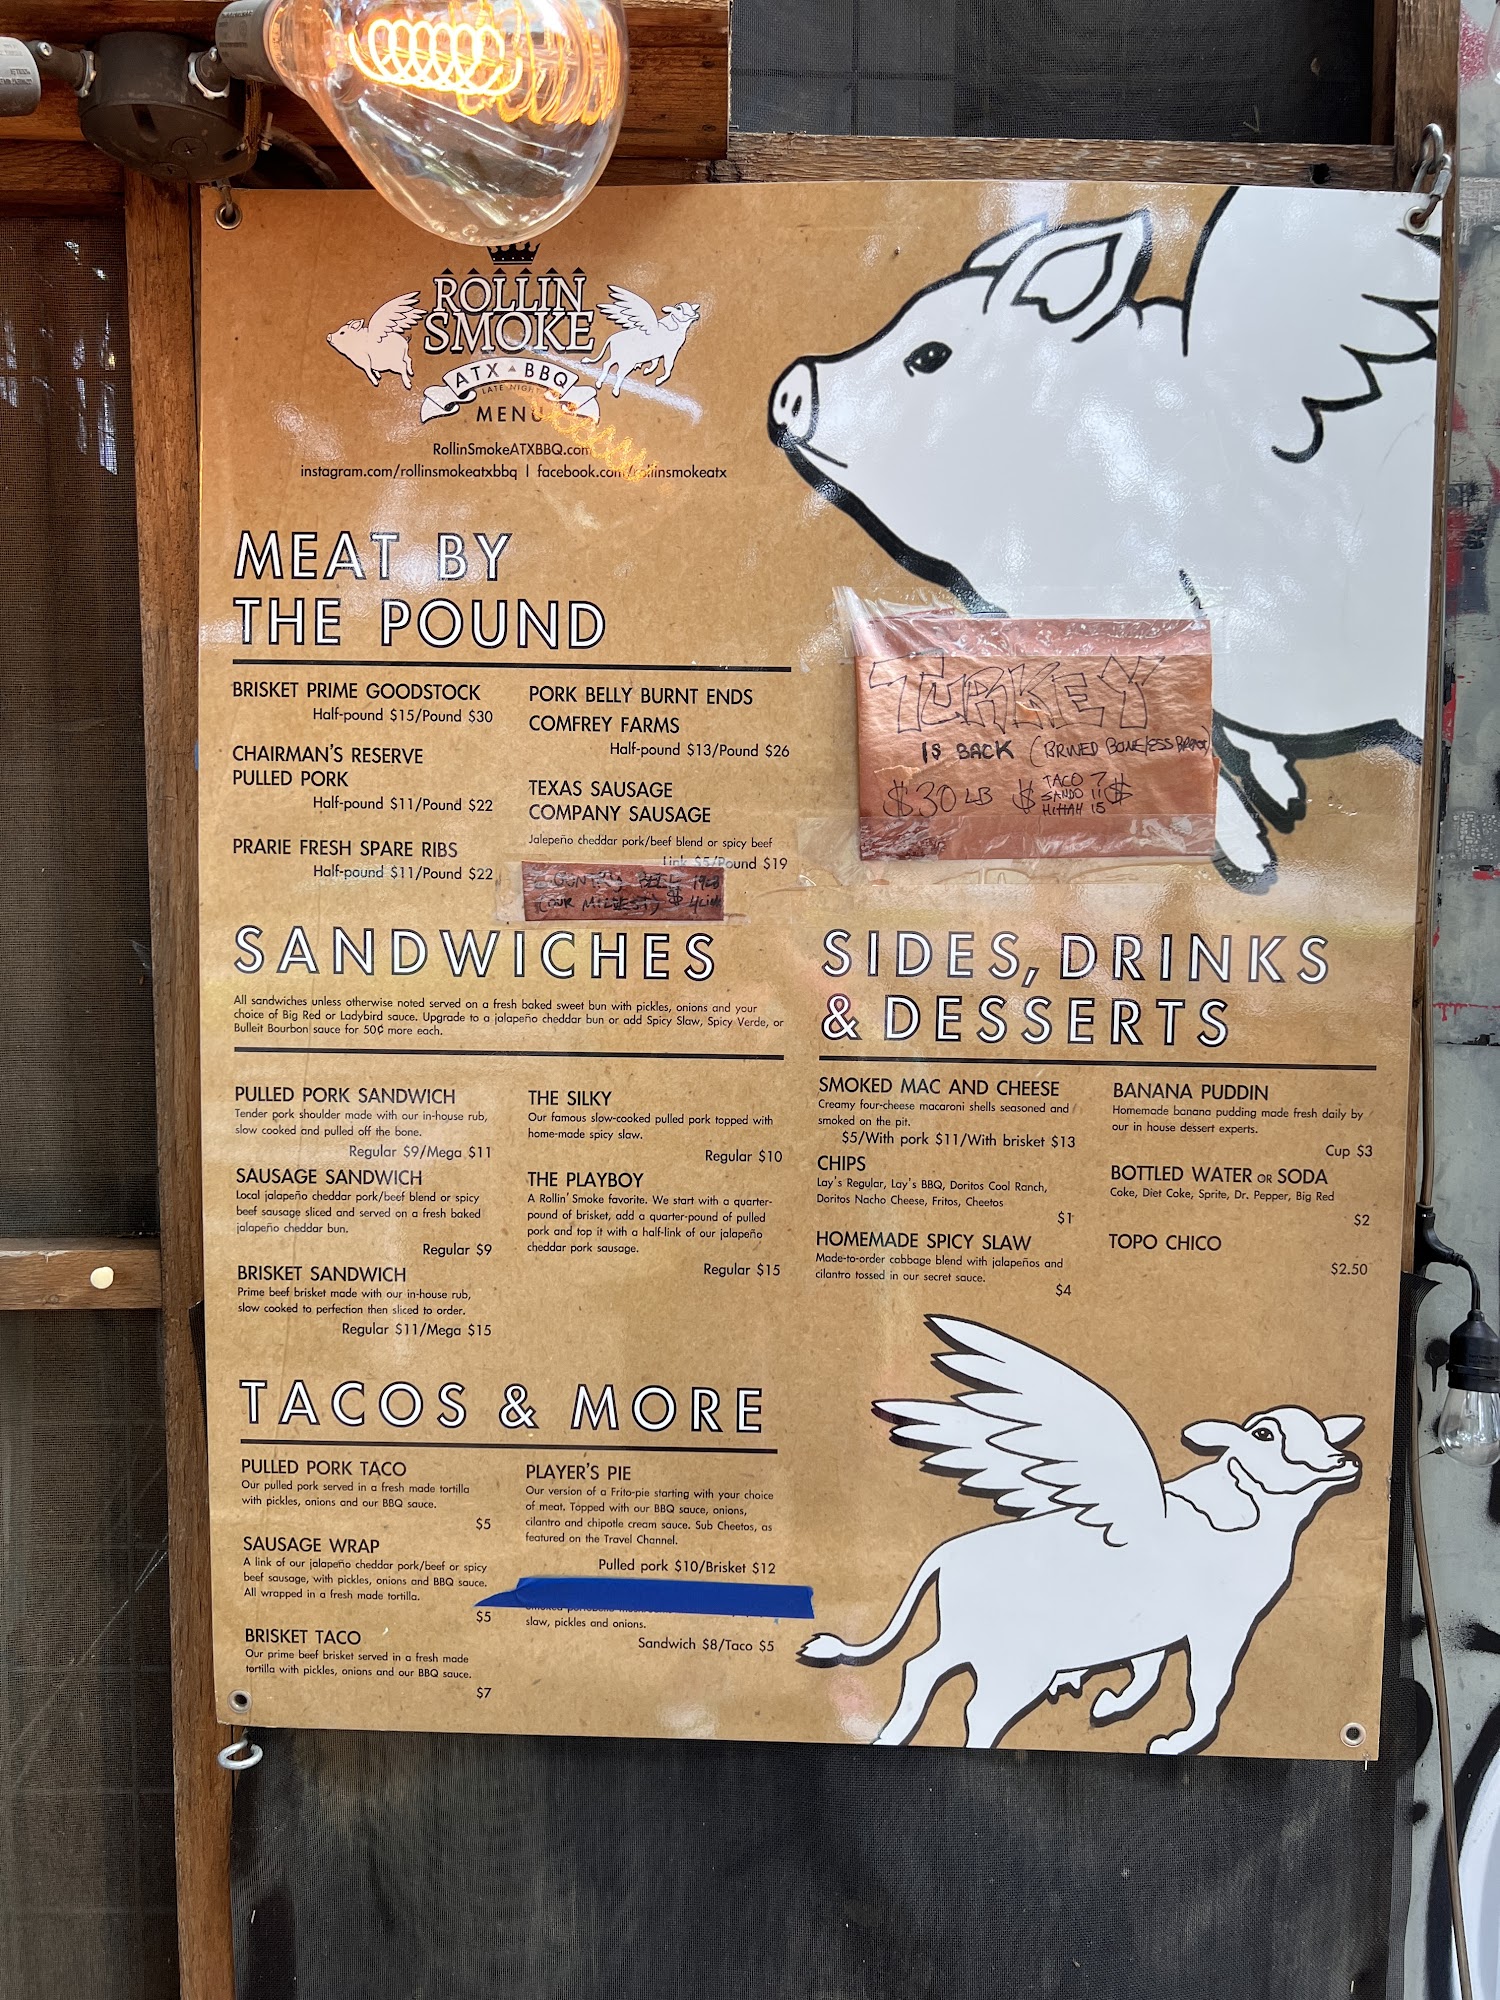 ROLLIN
SMOKE
ATX BBQ
LATE NIGHT
MENU
RollinSmokeATXBBQ.com
instagram.com/rollinsmokeatxbbq | facebook.com/rollinsmokeatx
MEAT BY
THE POUND
BRISKET PRIME GOODSTOCK
Half-pound $15/Pound $30
CHAIRMAN'S RESERVE
PULLED PORK
Half-pound $11/Pound $22
PRARIE FRESH SPARE RIBS
Half-pound $11/Pound $22
PORK BELLY BURNT ENDS
COMFREY FARMS
Half-pound $13/Pound $26
TEXAS SAUSAGE
COMPANY SAUSAGE
Jalepeño cheddar pork/beef blend or spicy beef
Link $5/Pound $19
COUNTRY BEEF
(OUR MILDEST) $
TURKEY
IS BACK (BRINED BONELESS BREAST)
$30 LB $ TACO 7 $
SANDO 11
HITTAH 15
SANDWICHES
All sandwiches unless otherwise noted served on a fresh baked sweet bun with pickles, onions and your
choice of Big Red or Ladybird sauce. Upgrade to a jalapeño cheddar bun or add Spicy Slaw, Spicy Verde, or
Bulleit Bourbon sauce for 50¢ more each.
PULLED PORK SANDWICH
Tender pork shoulder made with our in-house rub,
slow cooked and pulled off the bone.
Regular $9/Mega $11
SAUSAGE SANDWICH
Local jalapeño cheddar pork/beef blend or spicy
beef sausage sliced and served on a fresh baked
jalapeño cheddar bun.
Regular $9
BRISKET SANDWICH
Prime beef brisket made with our in-house rub,
slow cooked to perfection then sliced to order.
Regular $11/Mega $15
THE SILKY
Our famous slow-cooked pulled pork topped with
home-made spicy slaw.
Regular $10
THE PLAYBOY
A Rollin' Smoke favorite. We start with a quarter-
pound of brisket, add a quarter-pound of pulled
pork and top it with a half-link of our jalapeño
cheddar pork sausage.
Regular $15
SIDES, DRINKS
& DESSERTS
SMOKED MAC AND CHEESE
Creamy four-cheese macaroni shells seasoned and
smoked on the pit.
$5/With pork $11/With brisket $13
CHIPS
Lay's Regular, Lay's BBQ, Doritos Cool Ranch,
Doritos Nacho Cheese, Fritos, Cheetos
$1
HOMEMADE SPICY SLAW
Made-to-order cabbage blend with jalapeños and
cilantro tossed in our secret sauce.
$4
BANANA PUDDIN
Homemade banana pudding made fresh daily by
our in house dessert experts.
Cup $3
BOTTLED WATER OR SODA
Coke, Diet Coke, Sprite, Dr. Pepper, Big Red
$2
TOPO CHICO
$2.50
TACOS & MORE
PULLED PORK TACO
Our pulled pork served in a fresh made tortilla
with pickles, onions and our BBQ sauce.
$5
SAUSAGE WRAP
A link of our jalapeño cheddar pork/beef or spicy
beef sausage, with pickles, onions and BBQ sauce.
All wrapped in a fresh made tortilla.
$5
BRISKET TACO
Our prime beef brisket served in a fresh made
tortilla with pickles, onions and our BBQ sauce.
$7
PLAYER'S PIE
Our version of a Frito-pie starting with your choice
of meat. Topped with our BBQ sauce, onions,
cilantro and chipotle cream sauce. Sub Cheetos, as
featured on the Travel Channel.
Pulled pork $10/Brisket $12
slaw, pickles and onions.
Sandwich $8/Taco $5